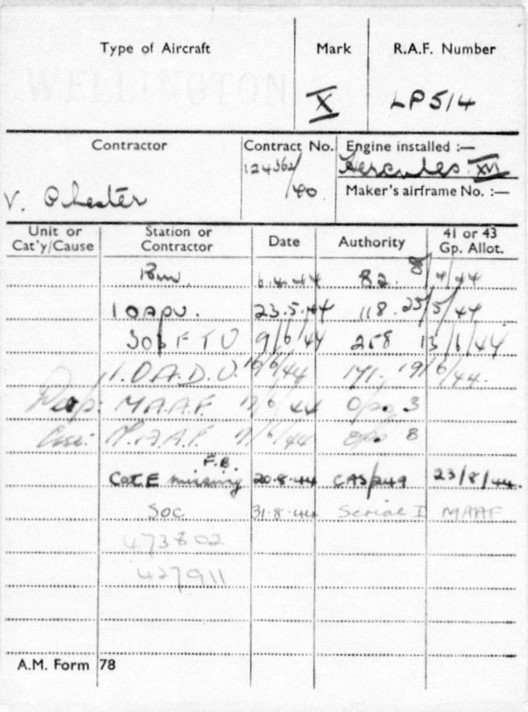 Type of Aircraft Mark R.A.F. Number
WELLINGTON X LP514
Contractor Contract No. Engine installed :—
V. Chester 124362/40 Hercules XVI
Maker's airframe No. :—
Unit or Cat'y/Cause Station or Contractor Date Authority 41 or 43 Gp. Allot.
6.4.44 82 8/4/44
1 OAPU. 23.5.44 118 25/5/44
301 F T U 9/6/44 258 13/6/44
1. O.A.D.U. 16/6/44 171. 19/6/44.
M.A.A.F. 17/6/44 3
M.A.A.F. 17/6/44 8
Cat E missing F.B. 20.8.44 CAS/249 23/8/44.
SOC 31.8.44 Serial I MAAF
473802
427911
A.M. Form 78